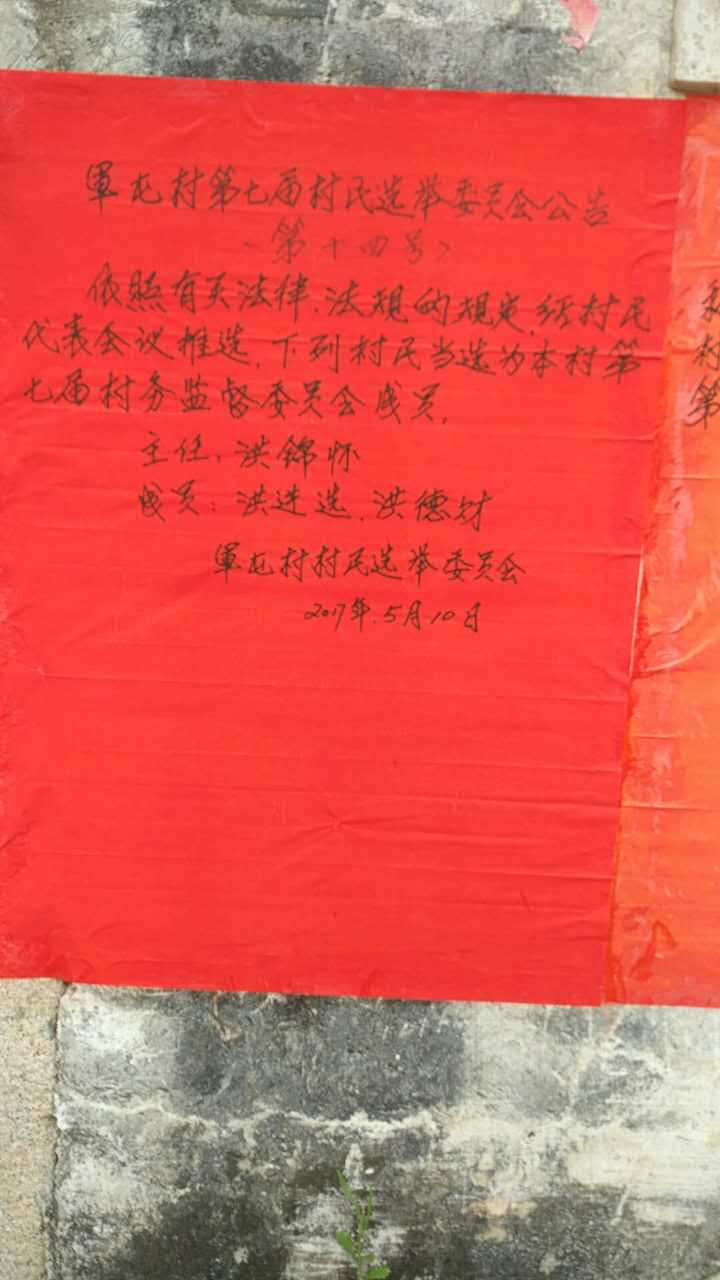 軍屯村第七届村民选举委员会公告
（第十四号）
依照有关法律、法规的规定,经村民
代表会议推选,下列村民当选为本村第
七届村务监督委员会成员,
主任:洪锦怀
成员:洪进选、洪德财
軍屯村村民选举委员会
2017年.5月10日
村
第